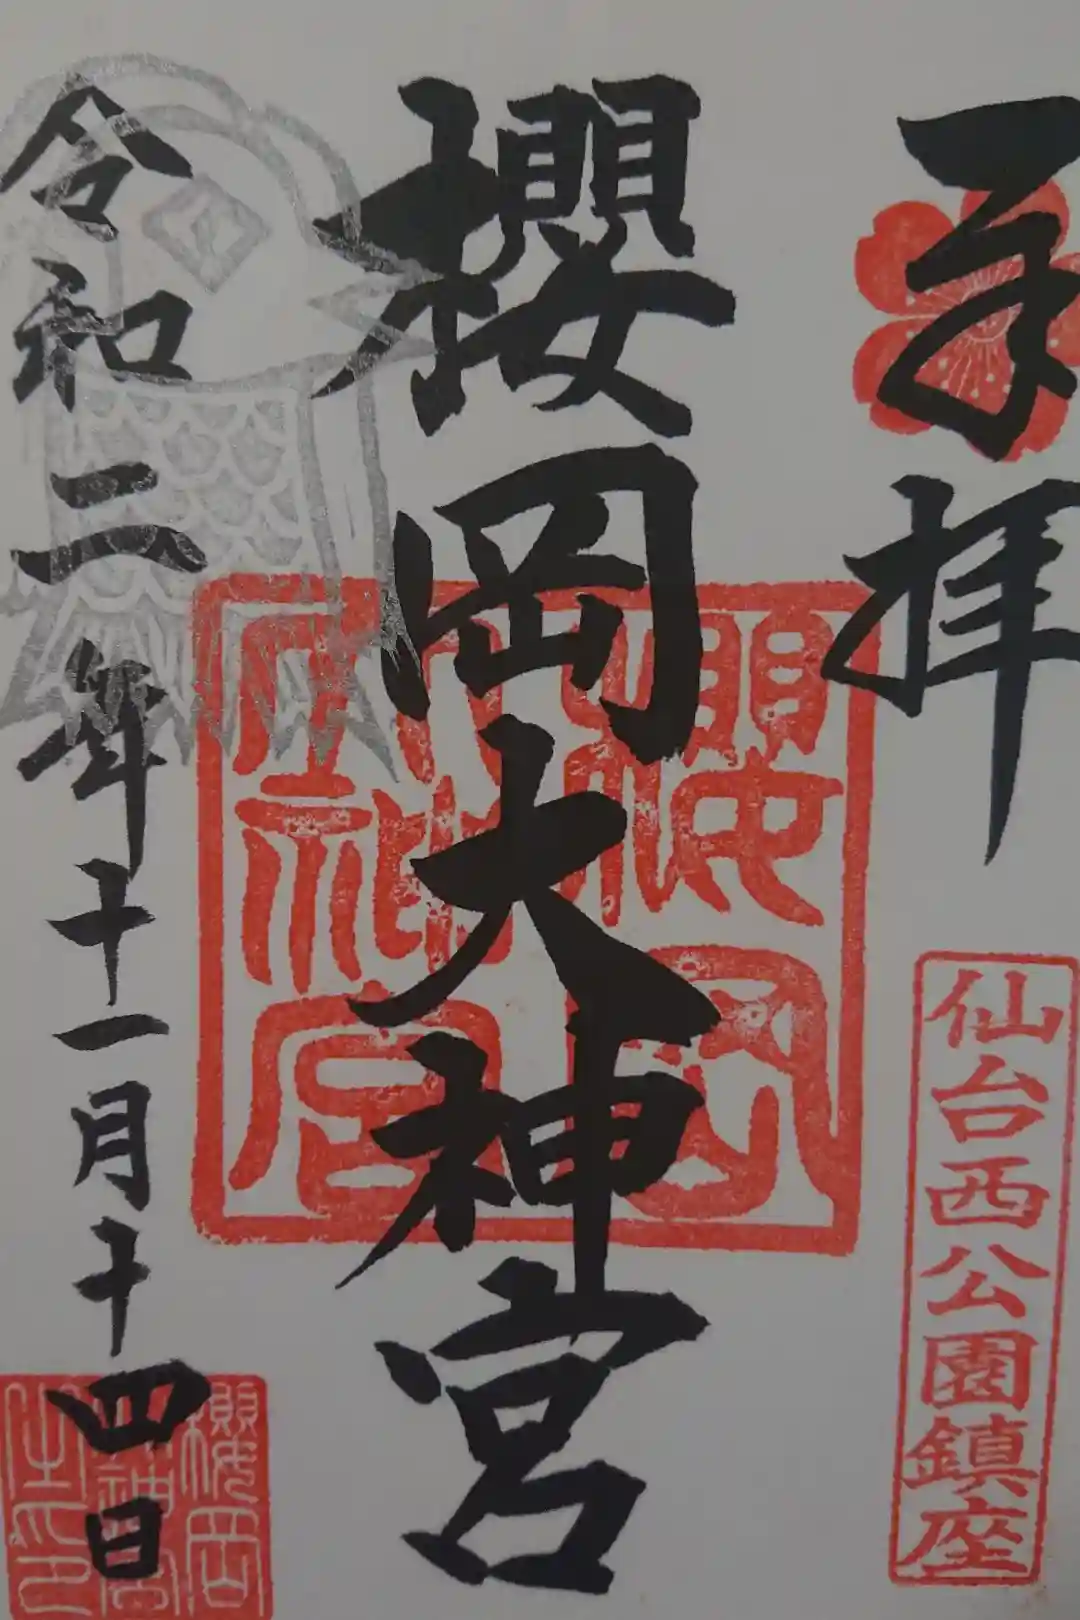 奉拝
仙台西公園鎮座
櫻岡大神宮
櫻岡大神宮
令和二年十一月十四日